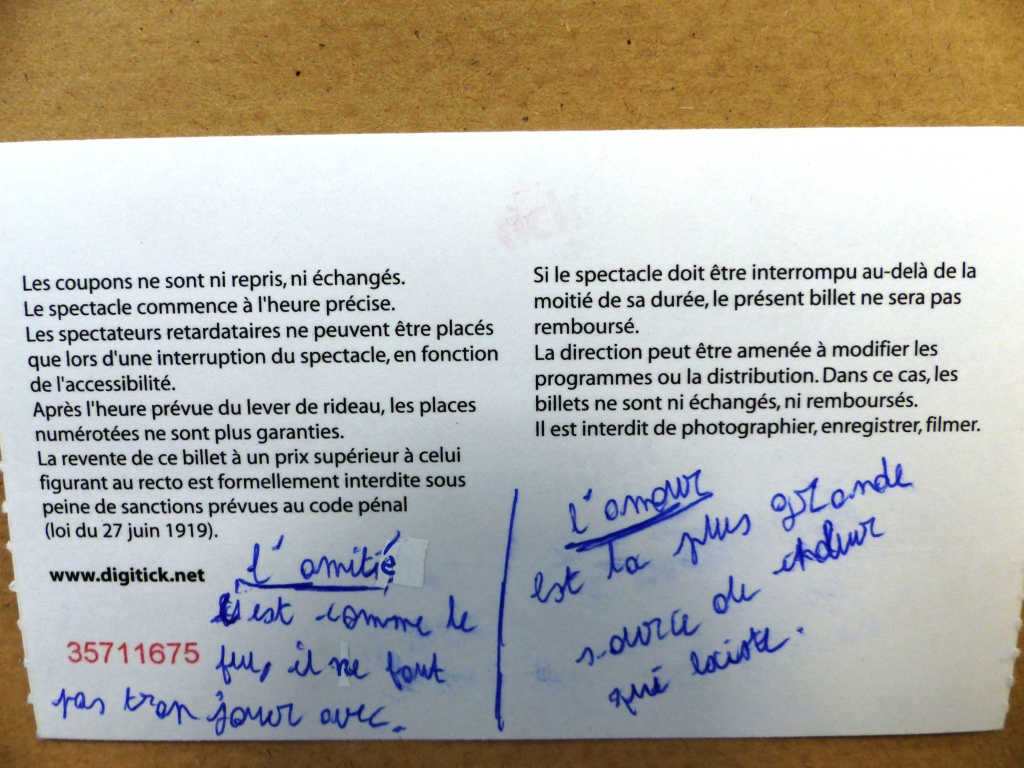 Les coupons ne sont ni repris, ni échangés.
Le spectacle commence à l'heure précise.
Les spectateurs retardataires ne peuvent être placés
que lors d'une interruption du spectacle, en fonction
de l'accessibilité.
Après l'heure prévue du lever de rideau, les places
numérotées ne sont plus garanties.
La revente de ce billet à un prix supérieur à celui
figurant au recto est formellement interdite sous
peine de sanctions prévues au code pénal
(loi du 27 juin 1919).
www.digitick.net
35711675
l'amitié
c'est comme le
feu, il ne faut
pas trop jouer avec.
Si le spectacle doit être interrompu au-delà de la
moitié de sa durée, le présent billet ne sera pas
remboursé.
La direction peut être amenée à modifier les
programmes ou la distribution. Dans ce cas, les
billets ne sont ni échangés, ni remboursés.
Il est interdit de photographier, enregistrer, filmer.
l'amour
est la plus grande
source de chaleur
qui existe.